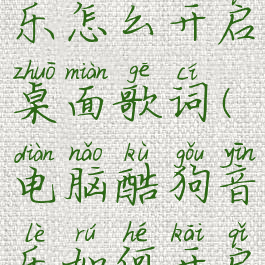 乐怎么开启
zhuō miàn gē cí
桌面歌词(
diàn nǎo kù gǒu yīn
电脑酷狗音
lè rú hé kāi qǐ
乐如何开启